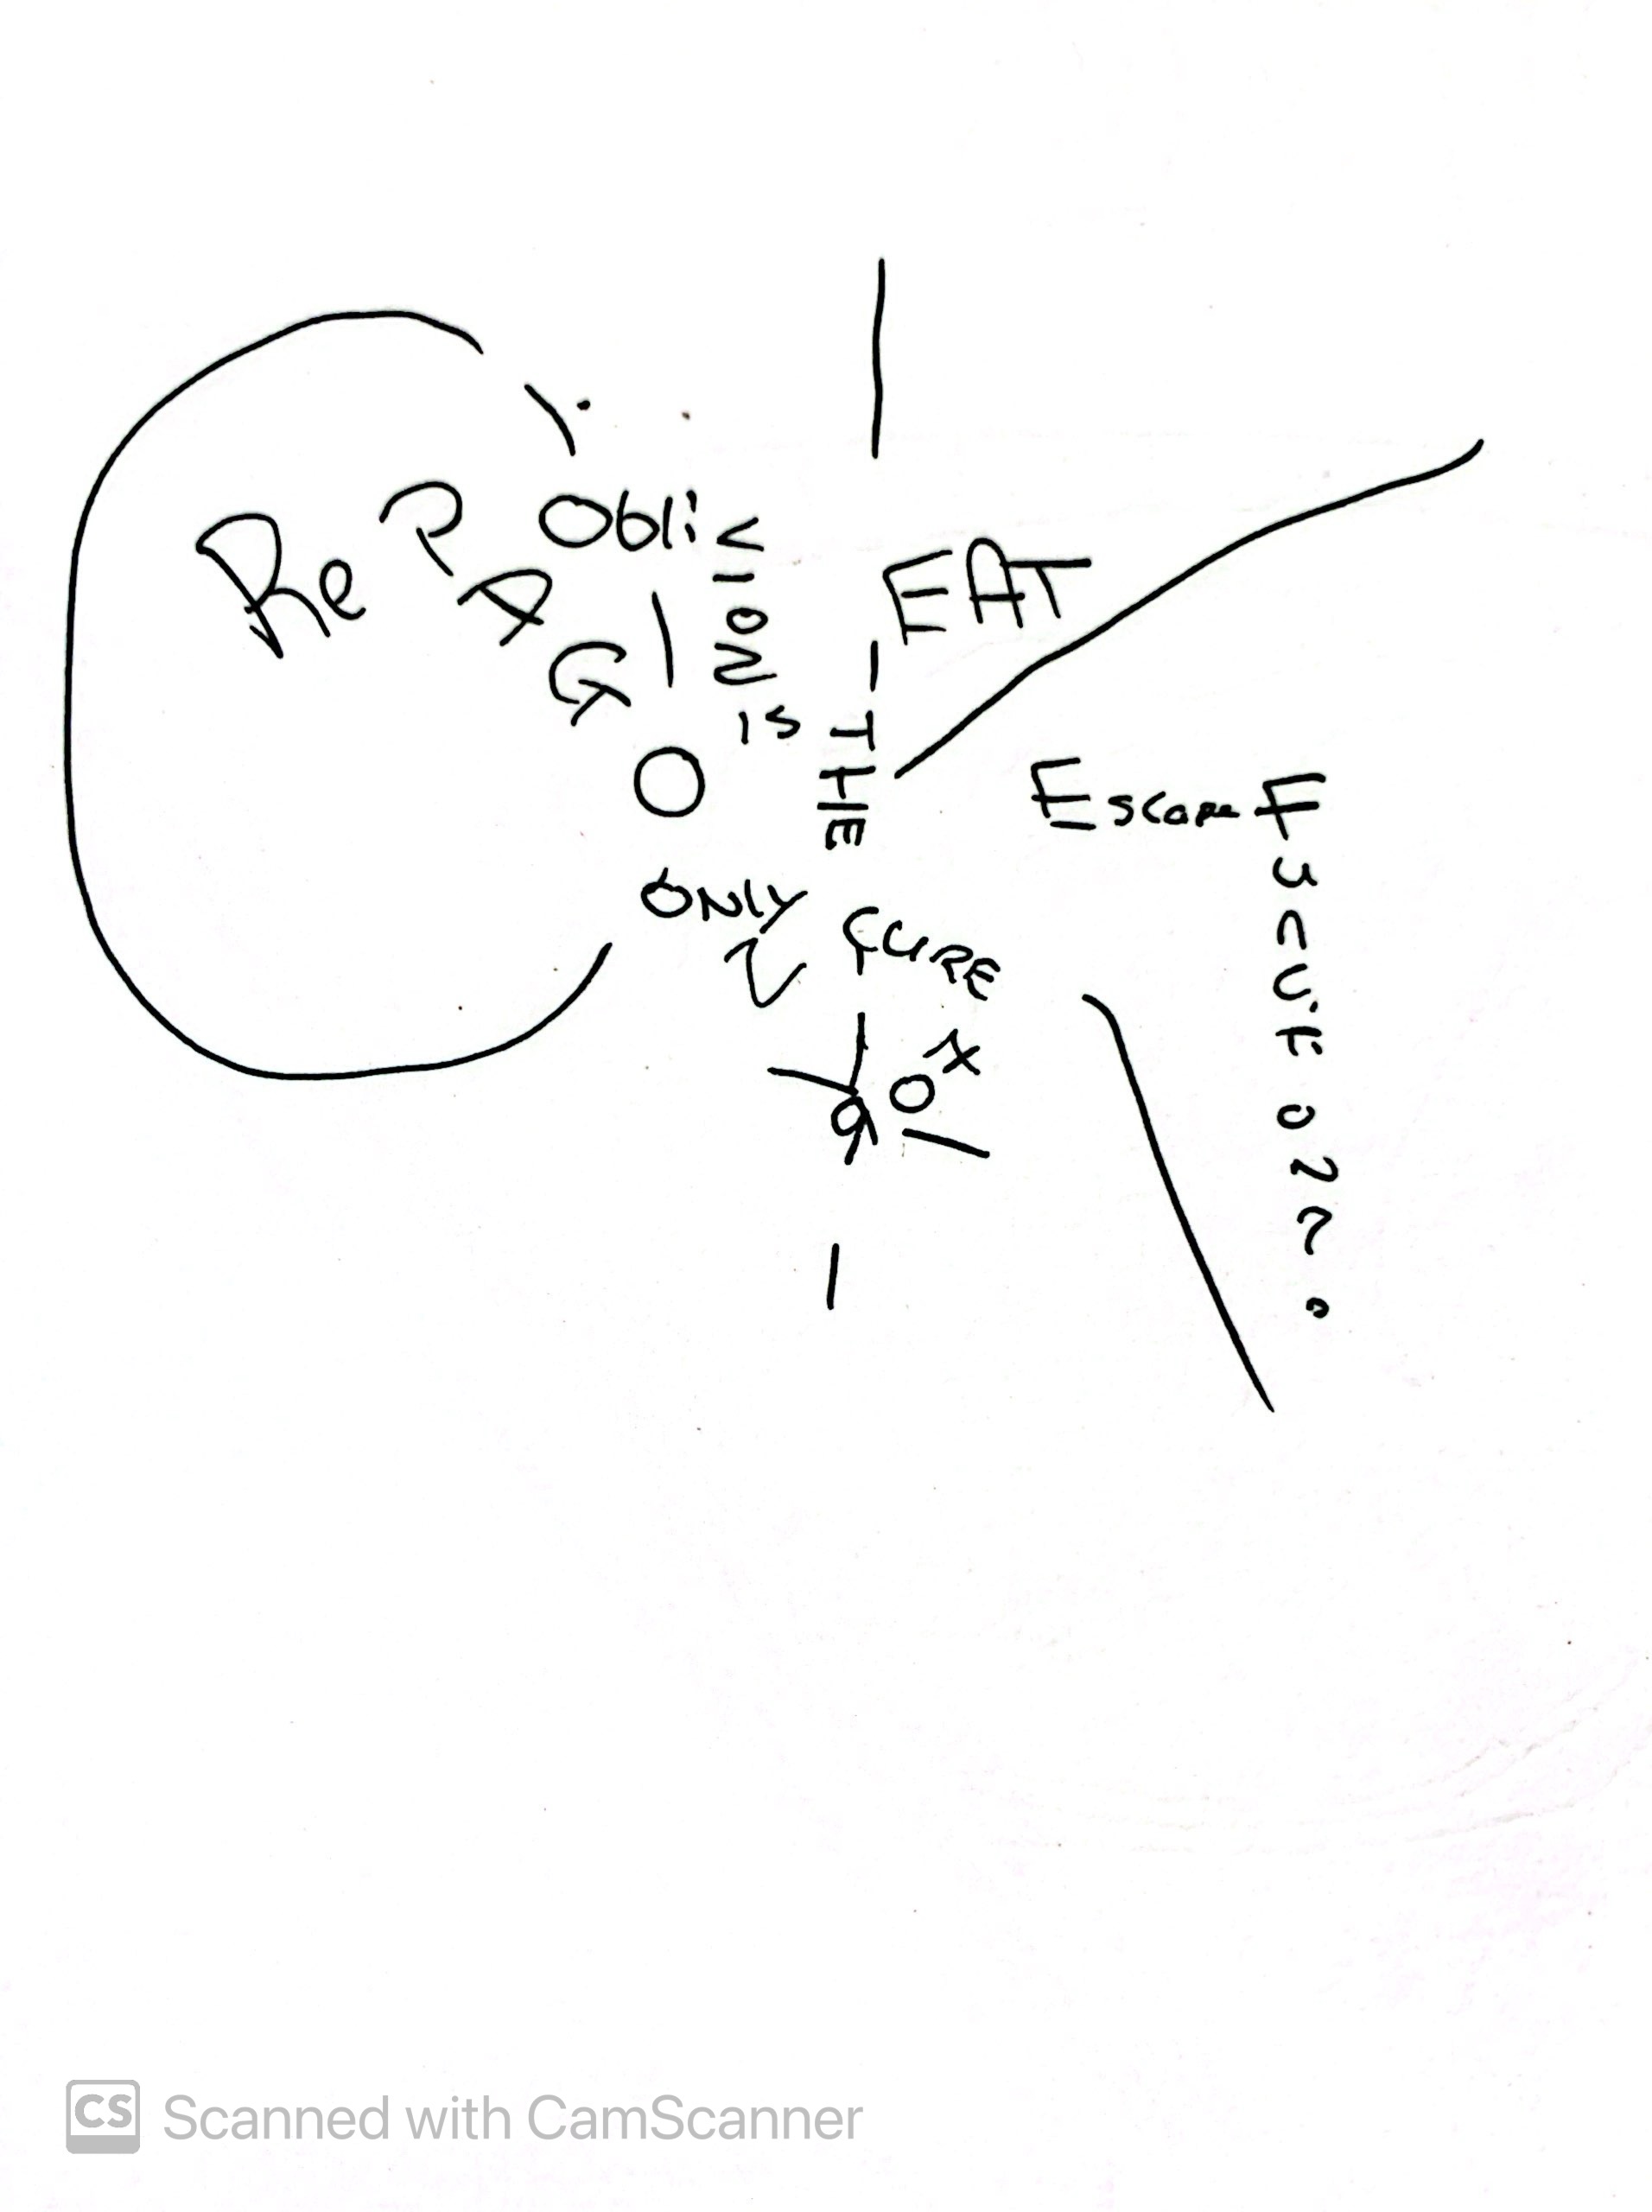 RePAGO
OBliViON
is
THE
ONLY
CURE
EAT
Escape
CS Scanned with CamScanner